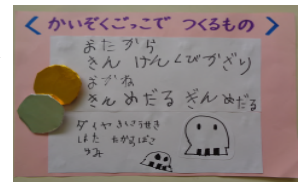 かいぞくごっこで つくるもの
おたから
きん けん くびかざり
おかね
きん めだる ぎん めだる
ダイヤ
たからばこ